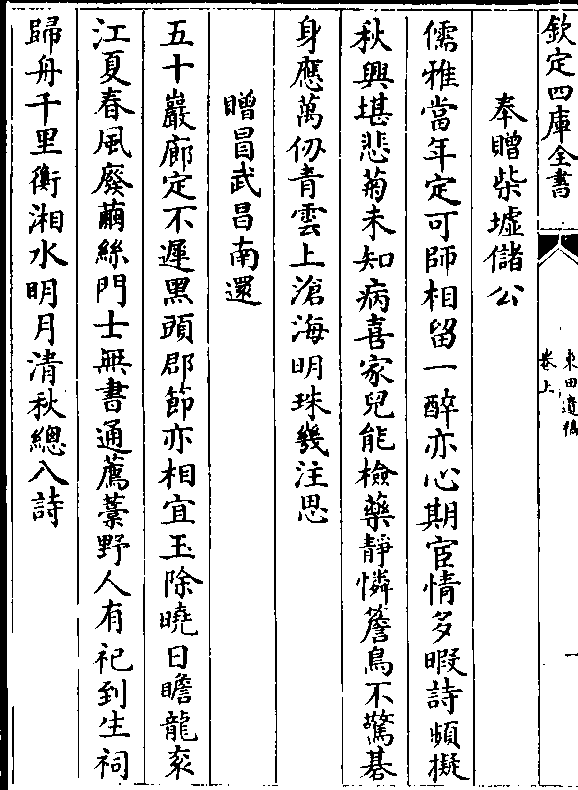 欽定四庫全書
東田遺稿
卷上
一
奉贈柴墟儲公
儒雅當年定可師相留一醉亦心期宦情多暇詩頻擬
秋興堪悲菊未知病喜家兒能檢藥靜憐簷鳥不驚棊
身應萬仞青雲上滄海明珠幾注思
贈冒武昌南還
五十巖廊定不遲黑頭郡節亦相宜玉除曉日瞻龍衮
江夏春風廢繭絲門士無書通薦藁野人有祀到生祠
歸舟千里衡湘水明月清秋總入詩